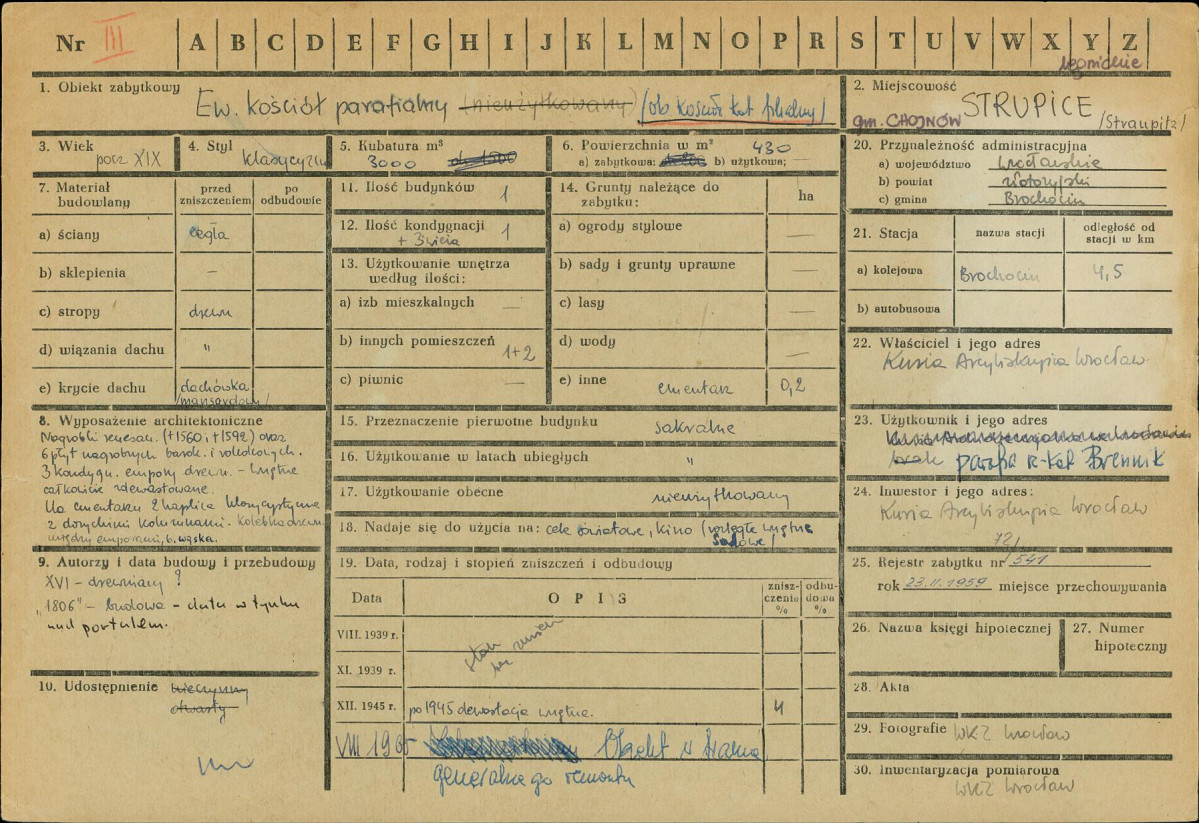 Nr III A B C D E F G H I J K L M N O P R S T U V W X Y Z
legnickie
1. Obiekt zabytkowy Ew. kościół parafialny (nieużytkowany) /ob. kościół kat. filialny/
2. Miejscowość STRUPICE
gm. CHOJNÓW /Straupitz/
3. Wiek pocz XIX
4. Styl klasycyzm
5. Kubatura m³ 3000
6. Powierzchnia w m² 430
a) zabytkowa: b) użytkowa; —
7. Materiał budowlany
przed zniszczeniem
po odbudowie
a) ściany cegła
b) sklepienia —
c) stropy drewn
d) wiązania dachu "
e) krycie dachu dachówka
/mansardowy/
8. Wyposażenie architektoniczne
Nagrobki renesan. (+1560 i +1592) oraz
6 płyt nagrobnych barok. i rokokowych.
3 kondygn. empory drewn. – wnętrze
całkowicie zdewastowane.
Na cmentarzu 2 kaplice klasycystyczne
z doryckimi kolumnami. Kolebka drewn.
między emporami, b. wąska.
9. Autorzy i data budowy i przebudowy
XVI – drewniany ?
"1806" – budowa – data w tynku
nad portalem.
10. Udostępnienie nieczynny
otwarty
11. Ilość budynków 1
12. Ilość kondygnacji 1
+ 3
13. Użytkowanie wnętrza
według ilości:
a) izb mieszkalnych —
b) innych pomieszczeń 1+2
c) piwnic —
14. Grunty należące do
zabytku:
ha
a) ogrody stylowe —
b) sady i grunty uprawne —
c) lasy
d) wody —
e) inne cmentarz 0,2
15. Przeznaczenie pierwotne budynku sakralne
16. Użytkowanie w latach ubiegłych "
17. Użytkowanie obecne nieużytkowany
18. Nadaje się do użycia na: cele światowe, kino (rozległe wnętrze
sadowe)
19. Data, rodzaj i stopień zniszczeń i odbudowy
Data
O P I S
znisz-
czenia
%
odbu-
dowa
%
VIII. 1939 r.
stan
bez zmian
XI. 1939 r.
XII. 1945 r. po 1945 dewastacja wnętrza. 4
VIII 1965 Obiekt w trakcie
generalnego remontu
20. Przynależność administracyjna
a) województwo wrocławskie
b) powiat złotoryjski
c) gmina Brochocin
21. Stacja
nazwa stacji
odległość od
stacji w km
a) kolejowa Brochocin 4,5
b) autobusowa
22. Właściciel i jego adres
Kuria Arcybiskupia Wrocław
23. Użytkownik i jego adres
brak parafia r-kat Brennik
24. Inwestor i jego adres:
Kuria Arcybiskupia Wrocław
72/
25. Rejestr zabytku nr 541
rok 23.II.1959 miejsce przechowywania
26. Nazwa księgi hipotecznej
27. Numer
hipoteczny
28. Akta
29. Fotografie WKZ Wrocław
30. Inwentaryzacja pomiarowa
WKZ Wrocław